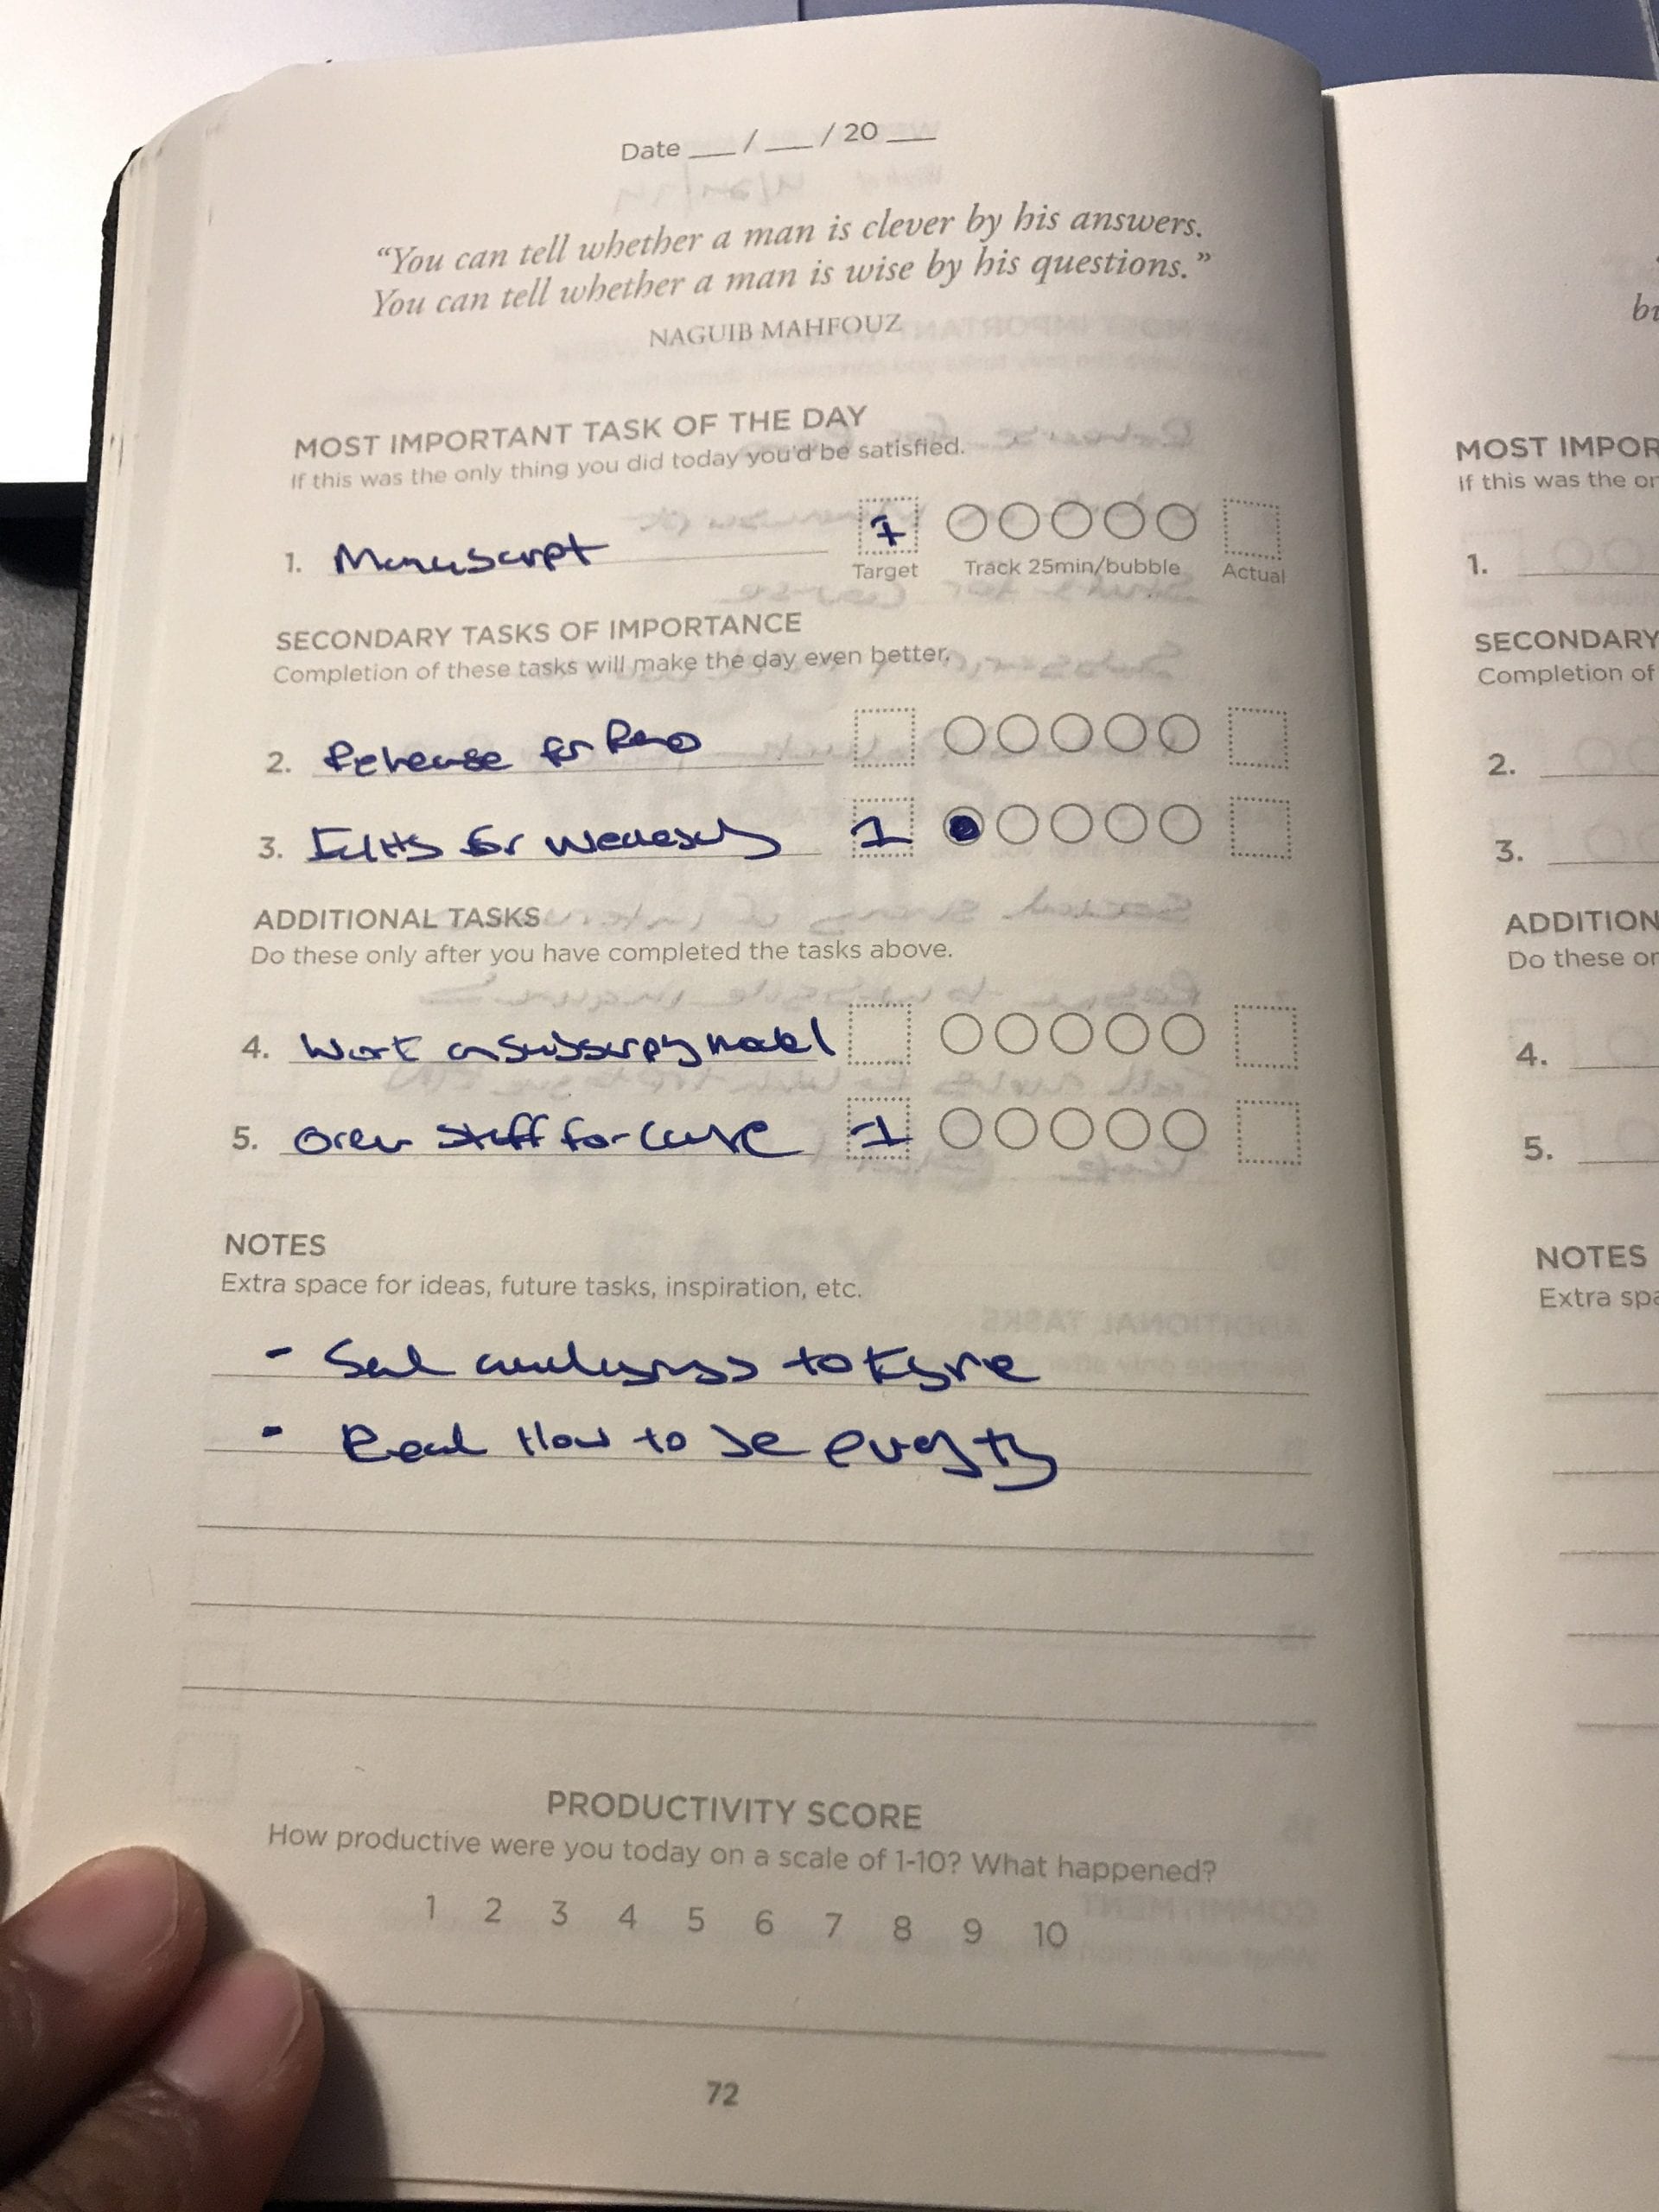 Date ___ / ___ / 20 ___
“You can tell whether a man is clever by his answers.
You can tell whether a man is wise by his questions.”
NAGUIB MAHFOUZ
MOST IMPORTANT TASK OF THE DAY
If this was the only thing you did today you'd be satisfied.
1. Manuscript
Target Track 25min/bubble Actual
SECONDARY TASKS OF IMPORTANCE
Completion of these tasks will make the day even better.
2. Rehearse for Reno
3. for 1
ADDITIONAL TASKS
Do these only after you have completed the tasks above.
4. Work on model
5. Order stuff for 1
NOTES
Extra space for ideas, future tasks, inspiration, etc.
- to
- Read How to be
PRODUCTIVITY SCORE
How productive were you today on a scale of 1-10? What happened?
1 2 3 4 5 6 7 8 9 10
72
bu
MOST IMPOR
If this was the or
1.
SECONDARY
Completion of
2.
3.
ADDITION
Do these or
4.
5.
NOTES
Extra spa